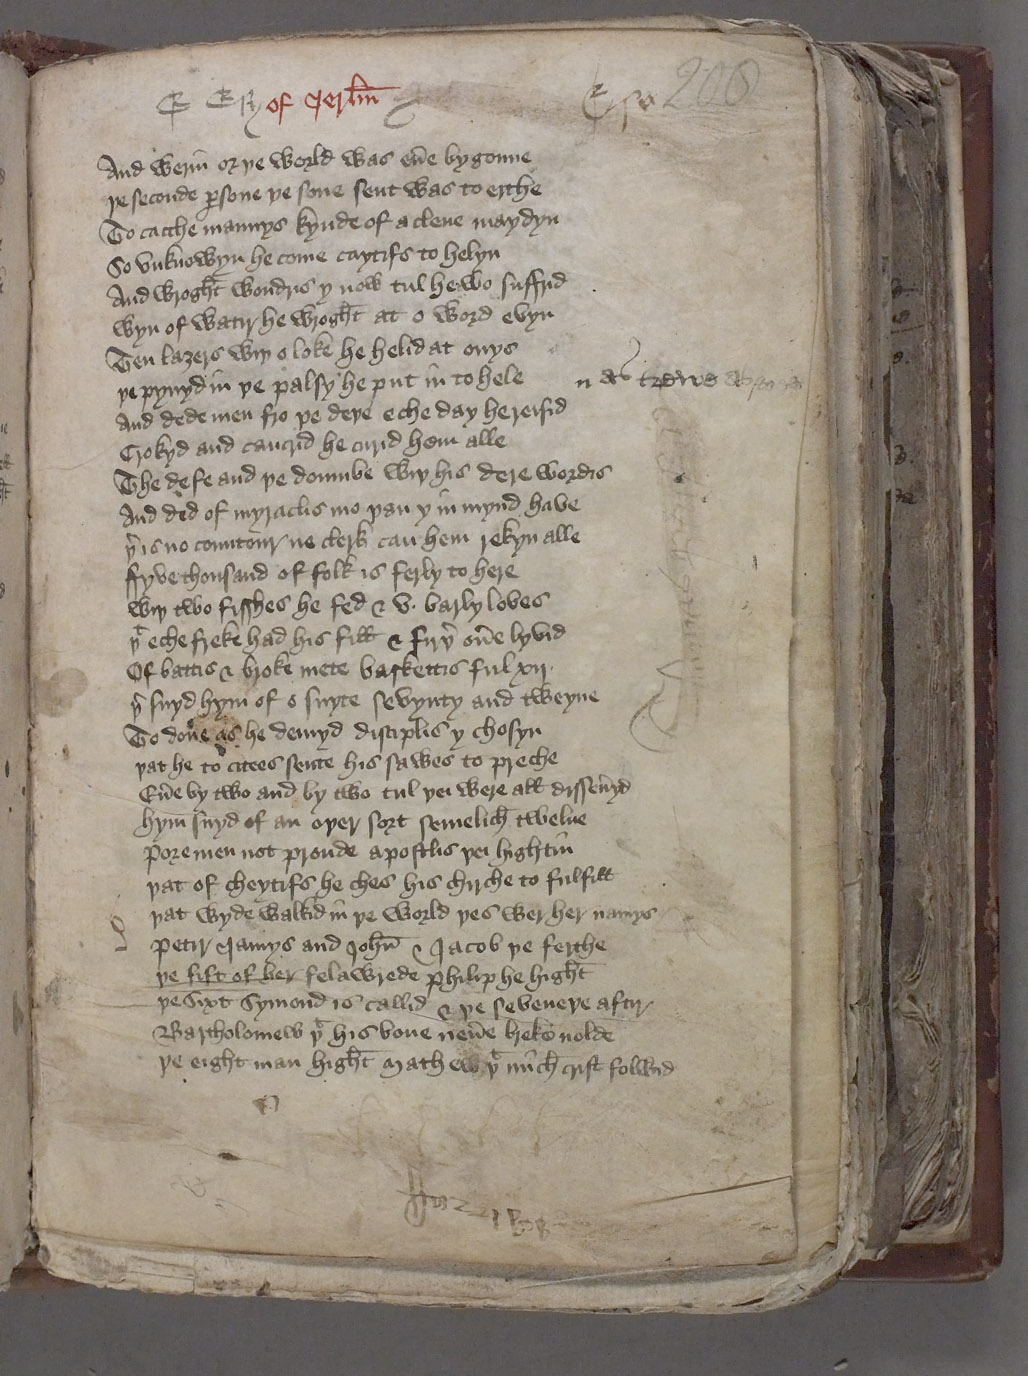 of Jerlm̄
208
And werin̄ or þe world was eu̅e bygonne
þe seconde ꝑsone þe sone sent was to erthe
To cacche mannys kynde of a clene maydyn
So vnknowyn he come caytifs to helyn
And wroght wondris y now tul he wo suffrid
wyn of watir he wroght at o word evyn
Ten lazers wiþ o loke he helid at onys
þe pynyd in̄ þe palsy he put in̄ to hele
And dede men fro þe deþe eche day he reisid
Crokyd and cancrid he curid hem alle
The defe and þe doumbe wiþ his dere wordis
And did of myraclis mo þan y in mynd have
þ̉ is no countour ne clerk can hem rekyn alle
ffyve thousand of folk is ferly to here
wiþ two fisshes he fed & v. barly loves
þ̉ eche freke had his fill & fuyr̉ ou̅e lyvid
Of battis & broke mete baskettis ful xij.
þ̉ suyd hym of o suyte sevynty and tweyne
To done as he demyd disciplis y chosyn
þat he to citees sente his sawes to preche
Eu̅e by two and by two tul þei were all disseu̅yd
hym̄ suyd of an oþer sort semelich twelue
pore men not proude apostlis þei hightin̄
þat of cheytifs he ches his chirche to fulfill
þat wyde walkid in̄ þe world þes wer her namys
petir Jamys and Joh̅n & Jacob þe ferthe
þe fift of her felawrede philip he hight
þe sixt Symond is callid & þe seveneþe aftir
Bartholomew þ̉ his bone neu̅e breke nolde
þe eight man hight Mathew þ̉ mich crist folwid